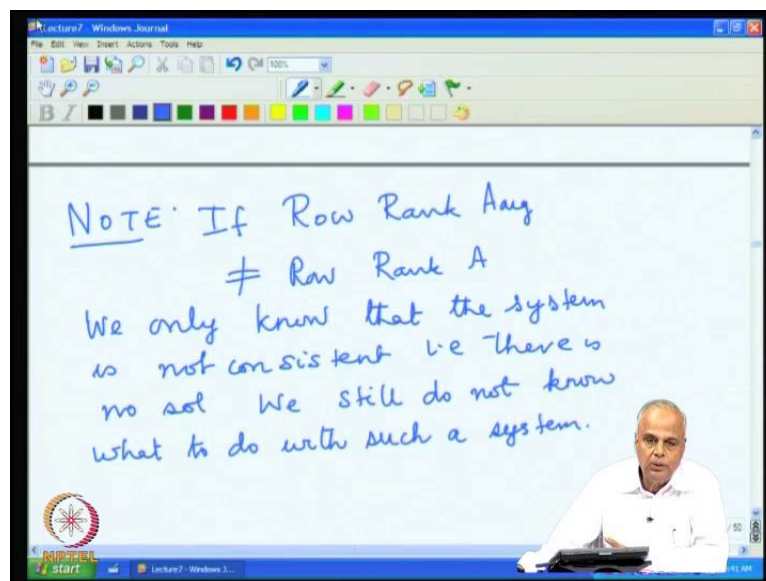 Lecture7 - Windows Journal
File Edit View Insert Actions Tools Help
100%
B I
NOTE: If Row Rank Aaug
≠ Row Rank A
We only know that the system
is not consistent i.e There is
no sol We still do not know
what to do with such a system.
/ 50
NPTEL
start Lecture7 - Windows J...
:41 AM